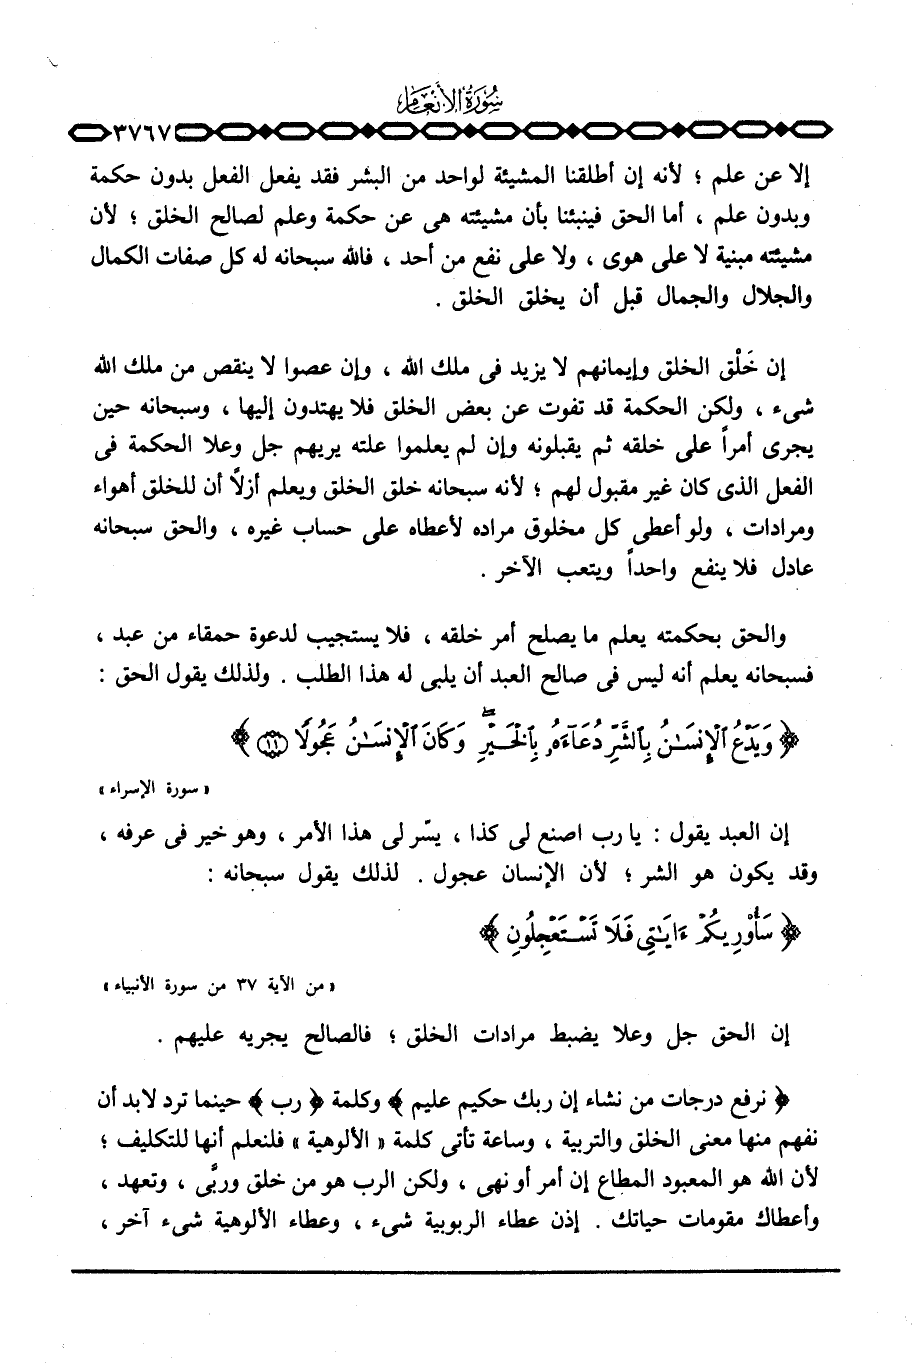 سورة الأنعام
٣٧٦٧
إلا عن علم ؛ لأنه إن أطلقنا المشيئة لواحد من البشر فقد يفعل الفعل بدون حكمة
وبدون علم ، أما الحق فينبئنا بأن مشيئته هى عن حكمة وعلم لصالح الخلق ؛ لأن
مشيئته مبنية لا على هوى ، ولا على نفع من أحد ، فالله سبحانه له كل صفات الكمال
والجلال والجمال قبل أن يخلق الخلق .
إن خَلْق الخلق وإيمانهم لا يزيد فى ملك الله ، وإن عصوا لا ينقص من ملك الله
شىء ، ولكن الحكمة قد تفوت عن بعض الخلق فلا يهتدون إليها ، وسبحانه حين
يجرى أمراً على خلقه ثم يقبلونه وإن لم يعلموا علته يريهم جل وعلا الحكمة فى
الفعل الذى كان غير مقبول لهم ؛ لأنه سبحانه خلق الخلق ويعلم أزلاً أن للخلق أهواء
ومرادات ، ولو أعطى كل مخلوق مراده لأعطاه على حساب غيره ، والحق سبحانه
عادل فلا ينفع واحداً ويتعب الآخر .
والحق بحكمته يعلم ما يصلح أمر خلقه ، فلا يستجيب لدعوة حمقاء من عبد ،
فسبحانه يعلم أنه ليس فى صالح العبد أن يلبى له هذا الطلب . ولذلك يقول الحق :
﴿ وَيَدْعُ ٱلْإِنسَـٰنُ بِٱلشَّرِّ دُعَآءَهُۥ بِٱلْخَيْرِۖ وَكَانَ ٱلْإِنسَـٰنُ عَجُولًا ﴿١١﴾ ﴾
« سورة الإسراء »
إن العبد يقول : يا رب اصنع لى كذا ، يسّر لى هذا الأمر ، وهو خير فى عرفه ،
وقد يكون هو الشر ؛ لأن الإنسان عجول . لذلك يقول سبحانه :
﴿ سَأُوْرِيكُمْ ءَايَـٰتِى فَلَا تَسْتَعْجِلُونِ ﴾
« من الآية ٣٧ من سورة الأنبياء »
إن الحق جل وعلا يضبط مرادات الخلق ؛ فالصالح يجريه عليهم .
﴿ نرفع درجات من نشاء إن ربك حكيم عليم ﴾ وكلمة ﴿ رب ﴾ حينما ترد لابد أن
نفهم منها معنى الخلق والتربية ، وساعة تأتى كلمة « الألوهية » فلنعلم أنها للتكليف ؛
لأن الله هو المعبود المطاع إن أمر أو نهى ، ولكن الرب هو من خلق وربَّى ، وتعهد ،
وأعطاك مقومات حياتك . إذن عطاء الربوبية شىء ، وعطاء الألوهية شىء آخر ،